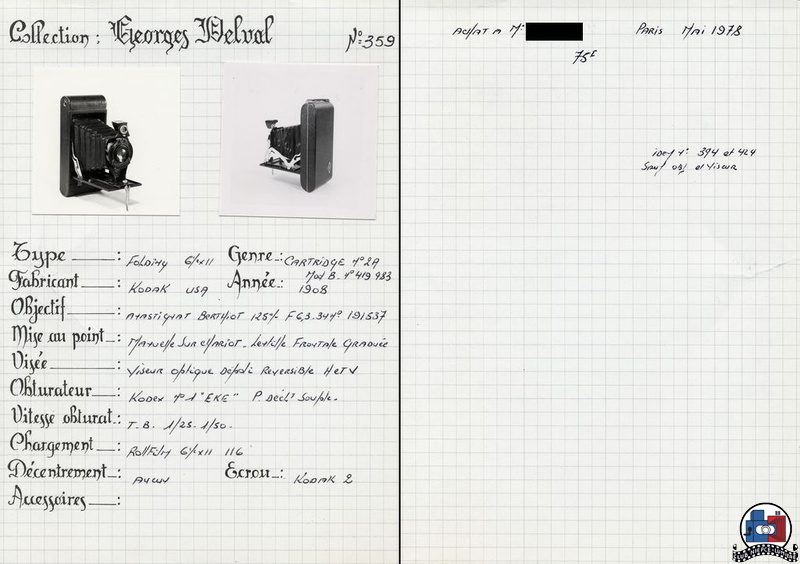 Collection : Georges Delval N° 359
Type : Folding 6½x11 Genre : CARTRIDGE N°2A
Mod B. N° 419 983
Fabricant : KODAK USA Année : 1908
Objectif : Anastigmat Berthiot 125% F 6,3. 344° 191537
Mise au point : Manuelle Sur chariot. Lentille Frontale Graduée
Visée : Viseur optique Dépoli Reversible H et V
Obturateur : Kodex N°1 "EKE" P. Décl! Souple.
Vitesse obturat : T. B. 1/25. 1/50.
Chargement : RollFilm 6½x11 116
Décentrement : Aucun Ecrou : KODAK 2
Accessoires :
ACHAT A Mr PARIS Mai 1978
75F
idem N° 394 et 424
Sauf obj et Viseur